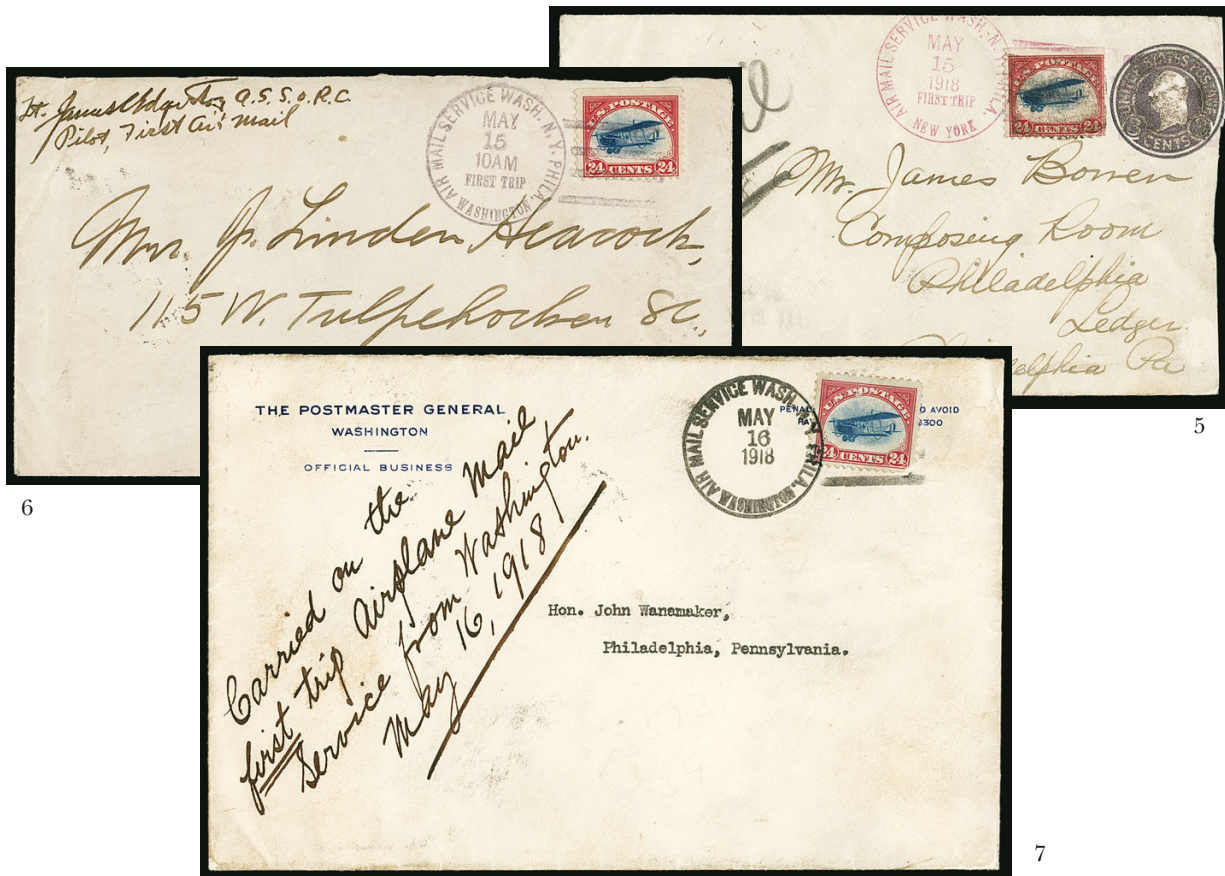 Lt. James Edgerton A.S.S.O.R.C.
Pilot, First Air Mail
AIR MAIL SERVICE WASH. N.Y. PHILA.
MAY
15
10AM
FIRST TRIP
WASHINGTON
U.S. POSTAGE
24 CENTS 24
Mrs. J. Linden Heacock,
115 W. Tulpehocken St.,
6
AIR MAIL SERVICE WASH. N.Y. PHILA.
MAY
15
1918
FIRST TRIP
NEW YORK
U.S. POSTAGE
24 CENTS 24
UNITED STATES POSTAGE
3 CENTS 3
Mr. James Bowen
Composing Room
Philadelphia
Ledger
Philadelphia Pa
5
THE POSTMASTER GENERAL
WASHINGTON
OFFICIAL BUSINESS
AIR MAIL SERVICE WASH. N.Y. PHILA.
MAY
16
1918
WASHINGTON
PENAL O AVOID
PA $300
U.S. POSTAGE
24 CENTS 24
Carried on the
first trip Airplane Mail
Service from Washington.
May 16, 1918
Hon. John Wanamaker,
Philadelphia, Pennsylvania.
7